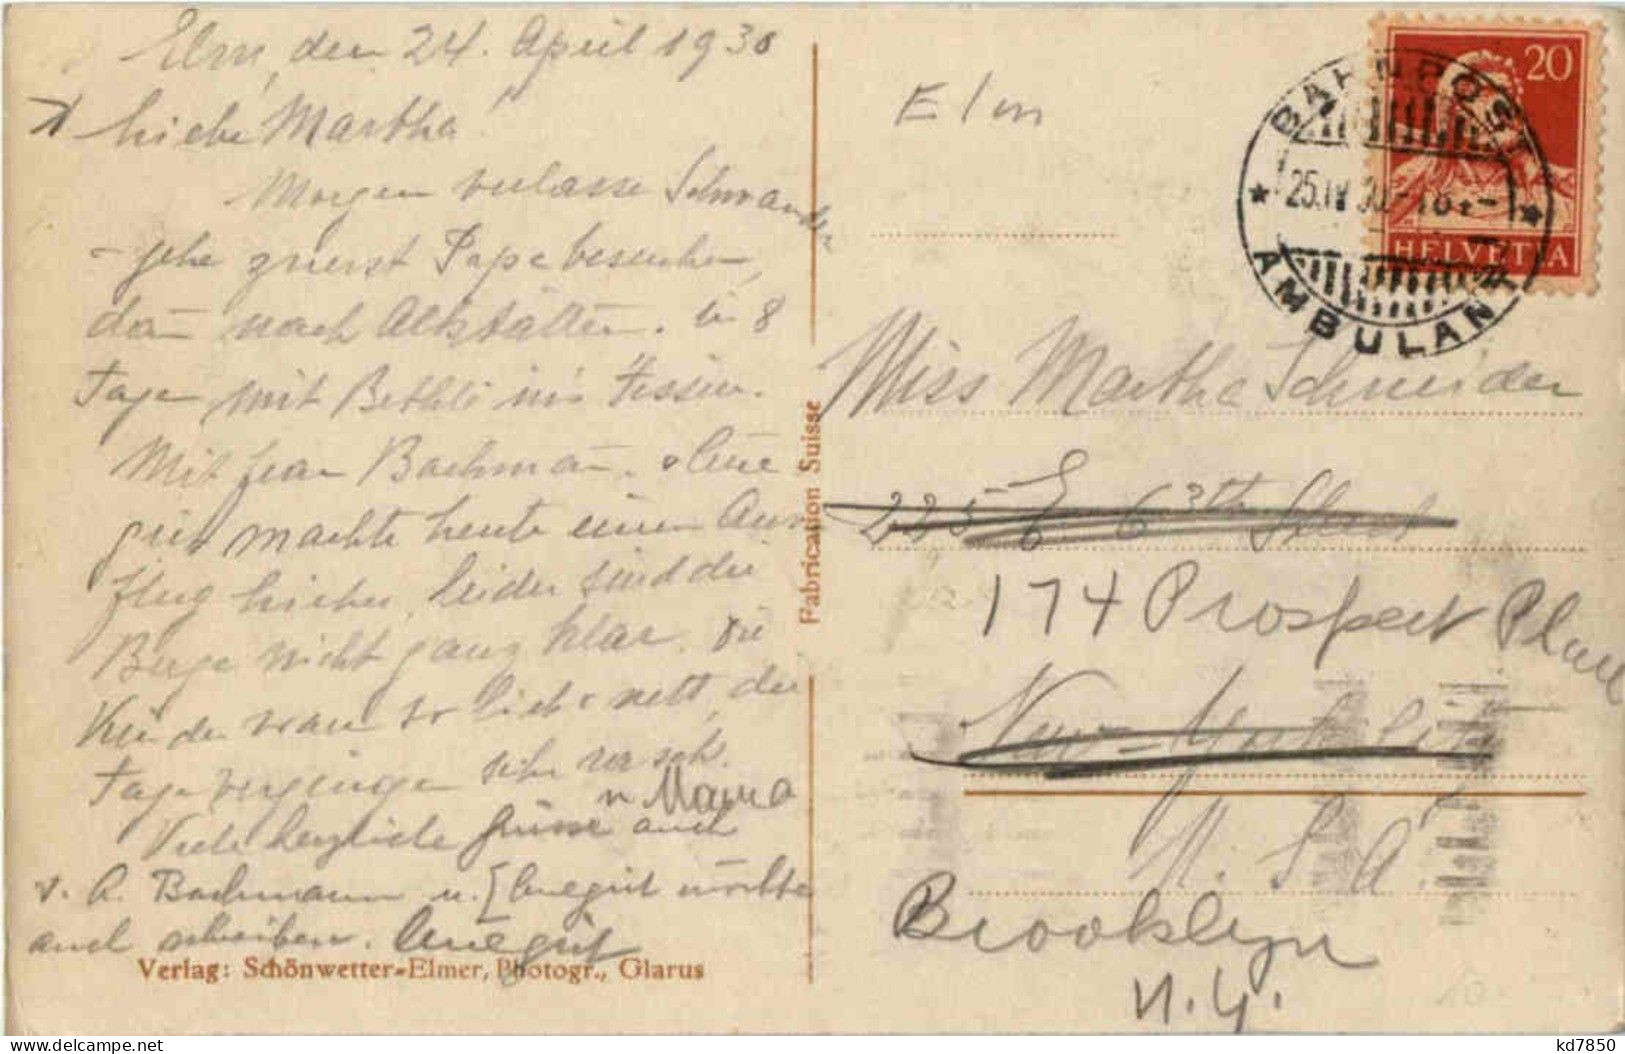 Elm, den 24. April 1930
Liebe Martha!
Morgen verlasse Schwanden
- gehe zuerst Papa besuchen,
dan̄ nach Altstätten. in 8
Tagen mit Bethli ins Tessin.
Mit frau Bachman̄.
machte heute einen Aus
flug hieher, leider sind die
Berge nicht ganz klar. Die
Kinder waren so lieb & nett, die
Tage vergingen sehr rasch.
Viele herzliche Grüsse auch
v. Mama
v. A. Bachmann u. [Annegrit möchte
auch schreiben. Annegrit
Verlag: Schönwetter-Elmer, Photogr., Glarus
Fabrication Suisse
Elm
BAHNPOST
25.IV 30.-
AMBULANT
20
HELVETIA
Miss Martha Schneider
225 E 63th Street
174 Prospect Place
New-York City
U. S. A.
Brooklyn
N.Y.
10
kd7850